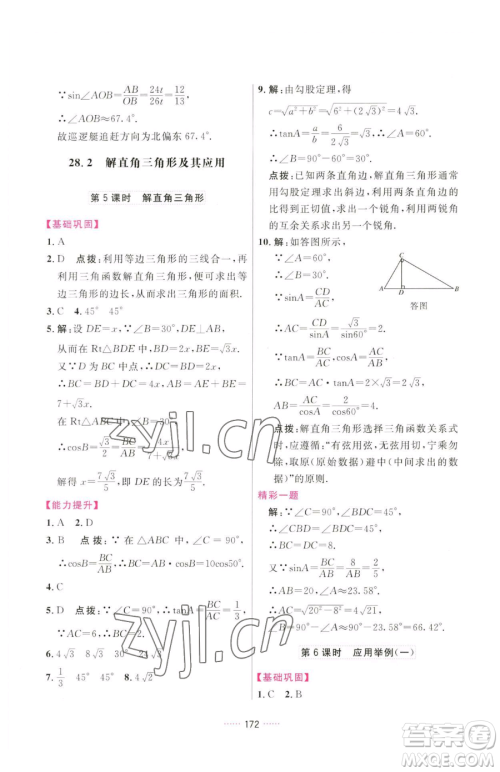 ∵sin∠AOB=AB/OB=24t/26t=12/13,
∴∠AOB≈67.4°.
故巡逻艇追赶方向为北偏东67.4°.
28.2 解直角三角形及其应用
第5课时 解直角三角形
【基础巩固】
1. A
2. D 点拨：利用等边三角形的三线合一，再利用三角函数解直角三角形，可求出等边三角形的边长，从而求出三角形的面积.
3. C 4. 45° 45°
5. 解：设DE=x，∵∠B=30°，DE⊥AB，
从而在Rt△BDE中，BD=2x，BE=√3x.
又∵D为BC中点，∴BC=2BD=4x，AB=7+√3x.
在Rt△ABC中，∵∠B=30°，
∴cosB=√3/2=BC/AB=4x/(7+√3x).
解得x=7√3/5，即DE的长度为7√3/5.
【能力提升】
1. A 2. D
3. B 点拨：∵在△ABC中，∠C=90°，
∴cosB=BC/AB，∴BC=AB·cosB=10cos50°.
4. C
5. D 点拨：∵∠C=90°，∴tanA=BC/AC=1/3.
6. 4√3 8√3 30° 7. 3√3
8. 1/3 45° 45° 4√2
9. 解：由勾股定理，得
c=√(a²+b²)=√(6²+(2√3)²)=4√3.
∵tanA=a/b=6/(2√3)=√3，∴∠A=60°.
∴∠B=90°-∠A=90°-60°=30°.
点拨：已知两条直角边，解直角三角形通常用勾股定理求出斜边，利用两条直角边的比得到正切值，先求出一个锐角，再利用两锐角的互余关系求出另一个锐角.
10. 解：如答图所示，
∵∠A=60°，
∴∠B=90°-∠A=30°.
∵sinA=CD/AC，
∴AC=CD/sinA=√3/sin60°=2.
∵tanA=BC/AC，cosA=AC/AB，
∴BC=AC·tanA=2×√3=2√3，
AB=AC/cosA=2/cos60°=4.
C
A
D
B
答图
点拨：解直角三角形选择三角函数关系式时，应遵循：“有弦用弦，无弦用切，宁乘勿除，取原（原始数据）避中（中间求出的数据）”的原则.
精彩一题
解：∵∠C=90°，∠BDC=45°，
∴∠CBD=∠BDC=45°.
∴BC=DC=8.
又∵sinA=BC/AB=8/20=2/5，
∴∠A≈23.58°.
∴AC=√(20²-8²)=4√21，
∠ABC=90°-∠A≈90°-23.58°=66.42°.
第6课时 应用举例（一）
【基础巩固】
1. C 2. B
172
zyjl.cn
zyjl.cn